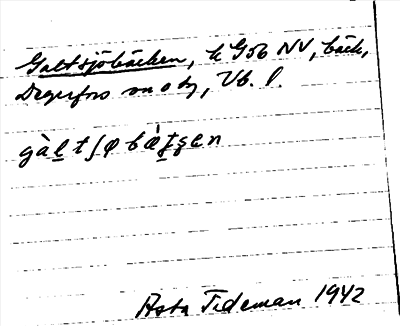 Galtsjöbäcken, k G56 NV, bäck,
Degerfors sn o tg, Vb. l.
gàl̲tʃφbæ̀t̲ʂɛn
Asta Tideman 1942